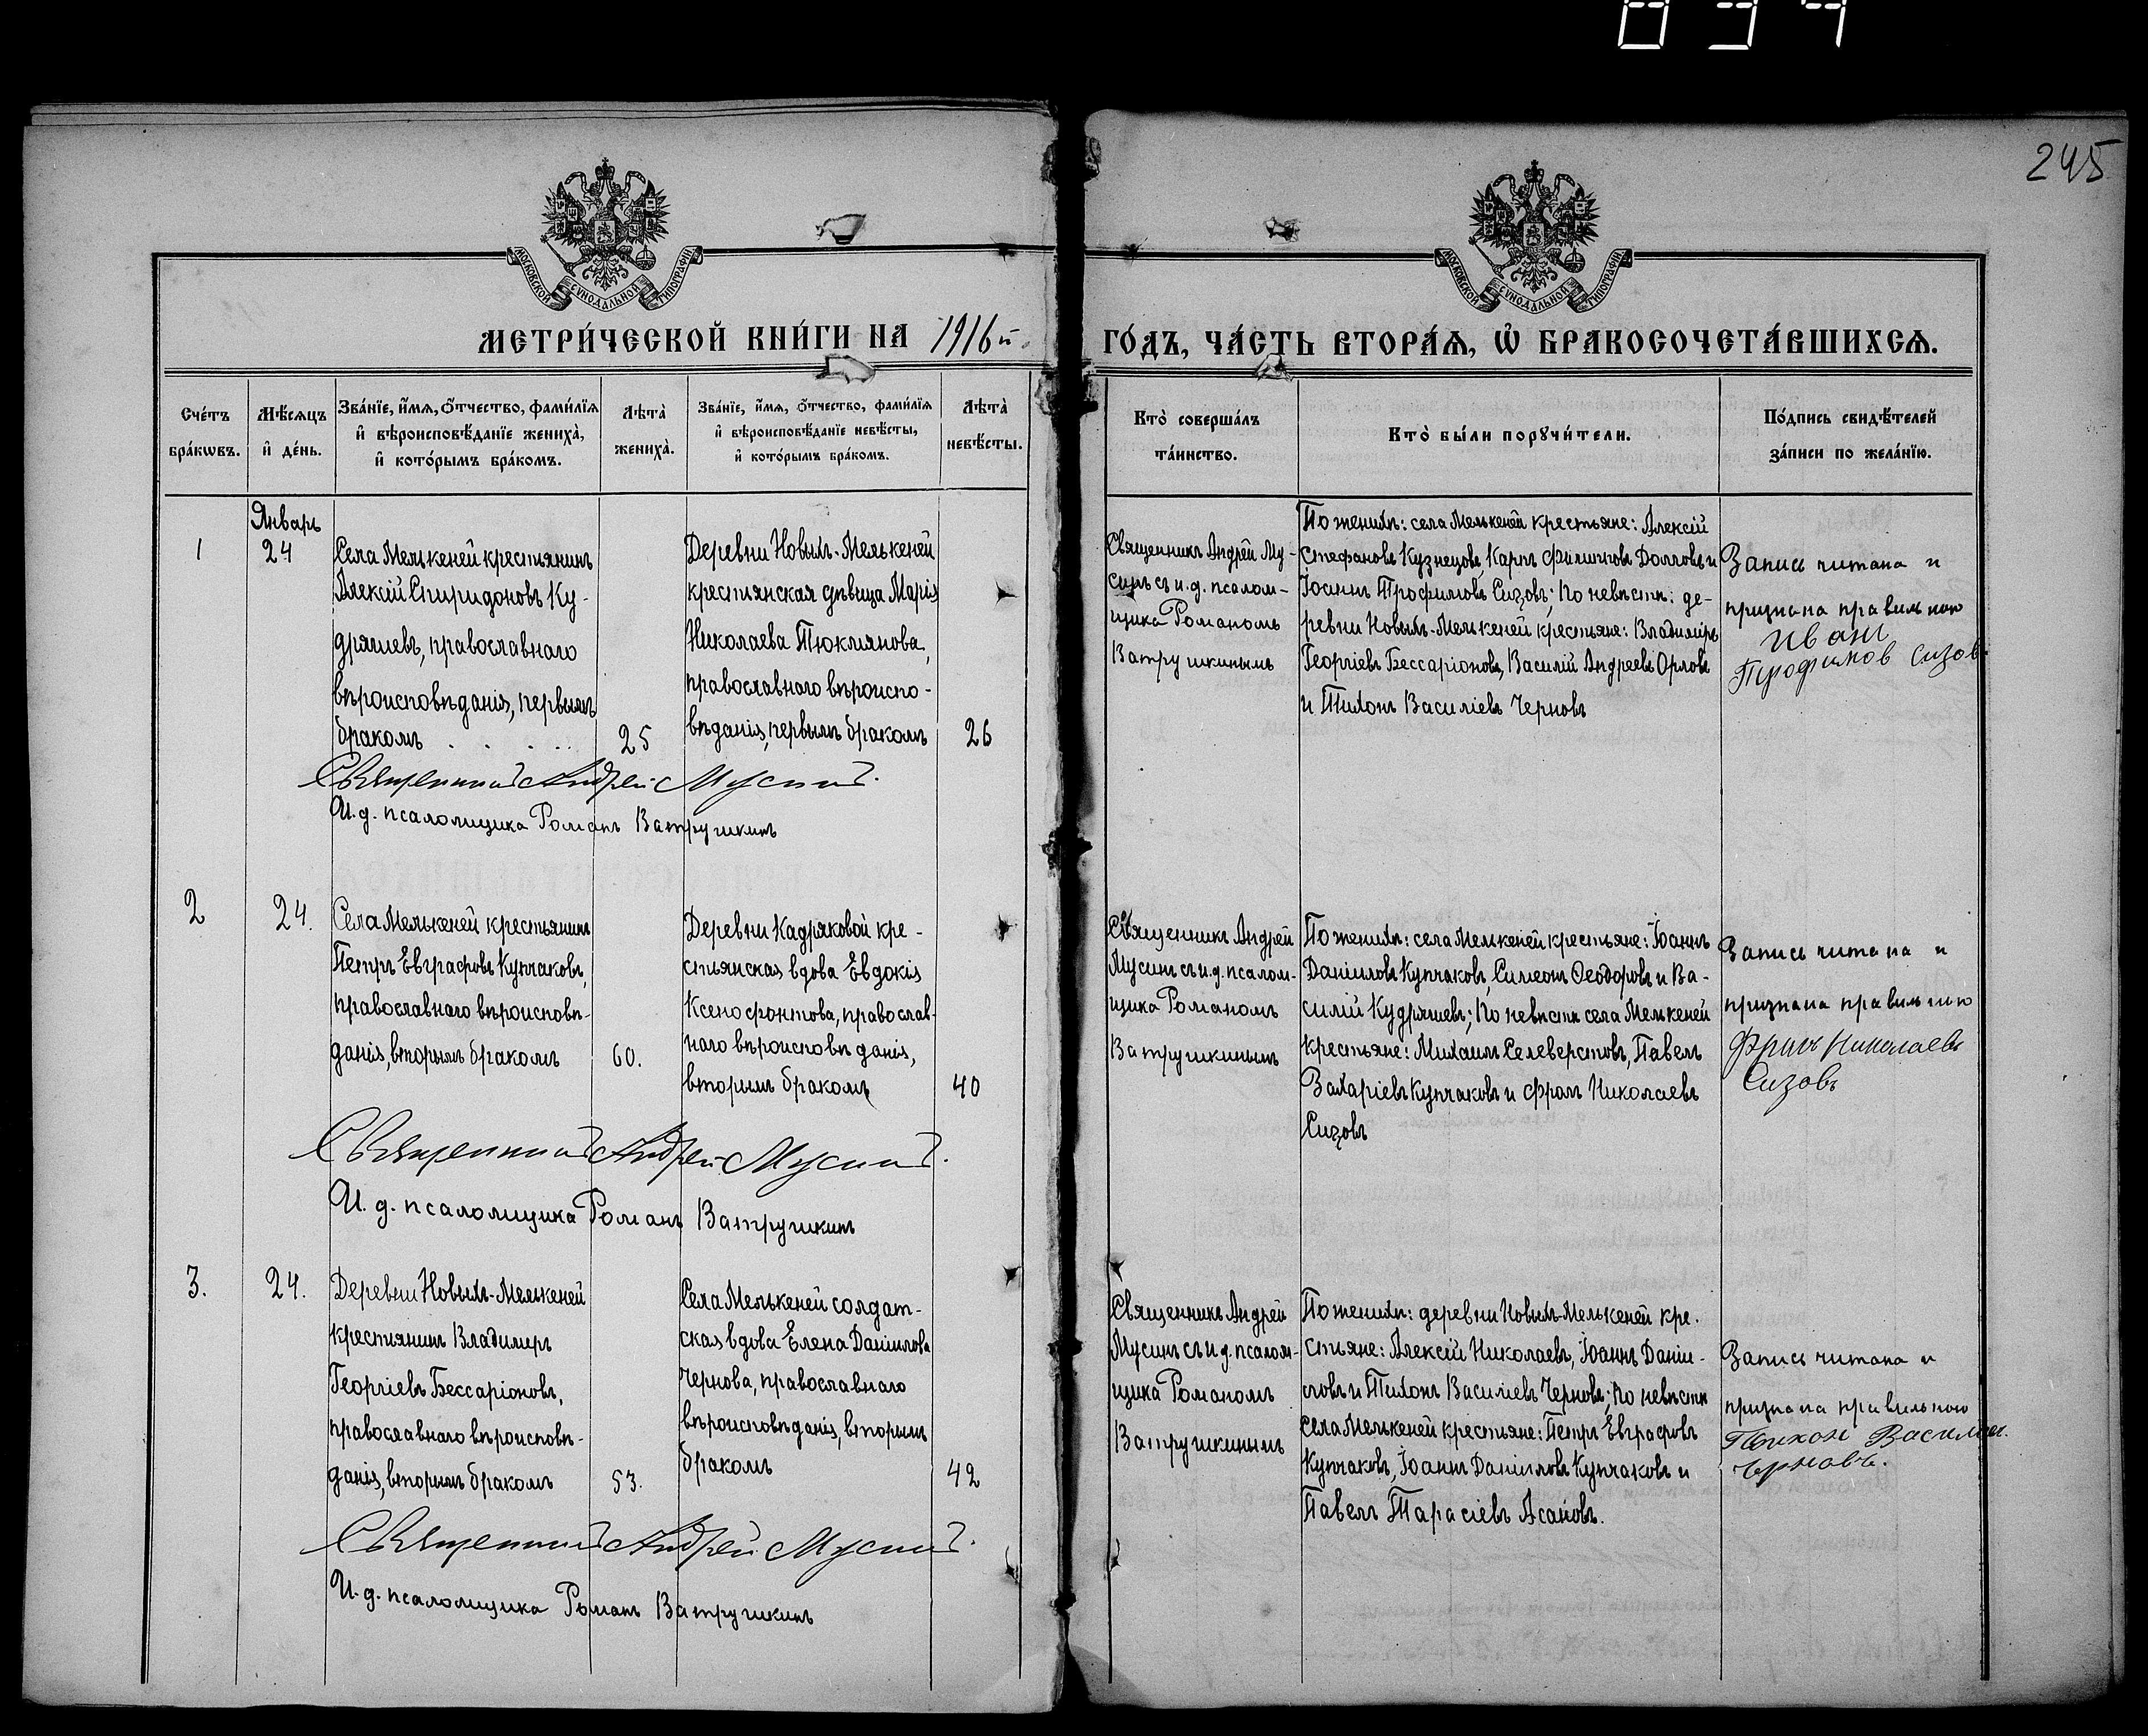 834
245
МОСКОВСКОЙ СѴНОДАЛЬНОЙ ТИПОГРАФІИ
МОСКОВСКОЙ СѴНОДАЛЬНОЙ ТИПОГРАФІИ
МЕТРИ́ЧЕСКОЙ КНИ́ГИ НА 1916й. ГО́ДЪ, ЧА́СТЬ ВТОРА́Ѧ, Ѽ БРАКОСОЧЕТА́ВШИХСѦ.
Сче́тъ бра́кѡвъ.
Мѣ́сѧцъ и҆ де́нь.
Зва́нїе, и҆́мѧ, ѻ҆́тчество, фами́лїѧ
и҆ вѣроисповѣ́данїе жениха̀,
и҆ кото́рымъ бра́комъ.
Лѣта̀ жениха̀.
Зва́нїе, и҆́мѧ, ѻ҆́тчество, фами́лїѧ
и҆ вѣроисповѣ́данїе невѣ́сты,
и҆ кото́рымъ бра́комъ.
Лѣта̀ невѣ́сты.
Кто̀ соверша́лъ
та́инство.
Кто̀ бы́ли порꙋчи́тели.
По́дпись свидѣ́телей
за́писи по жела́нїю.
1
Январь
24
Села Мелькеней крестьянинъ
Алексій Спиридоновъ Ку-
дряшевъ, православнаго
вѣроисповѣданія, первымъ
бракомъ
25
Деревни Новыхъ-Мелькеней
крестьянская дѣвица Марія
Николаева Тюкмянова,
православнаго вѣроиспо-
вѣданія, первымъ бракомъ
26
Священникъ Андрей Му-
синъ съ и.д. псалом-
щика Романомъ
Ватрушкинымъ
По женихѣ: села Мелькеней крестьяне: Алексій
Стефановъ Кузнецовъ, Карпъ Филипповъ Долговъ и
Іоаннъ Трофимовъ Сизовъ; По невѣстѣ: де-
ревни Новыхъ-Мелькеней крестьяне: Владиміръ
Георгіевъ Бессаріоновъ, Василій Андреевъ Орловъ
и Тихонъ Василіевъ Черновъ
Запись читана и
признана правильною
Иван
Трофимов Сизов
Священникъ Андрей Мусинъ.
И.д. псаломщика Романъ Ватрушкинъ
2
24.
Села Мелькеней крестьянинъ
Петръ Евграфовъ Купчаковъ,
православнаго вѣроисповѣ-
данія, вторымъ бракомъ
60.
Деревни Кадряковой кре-
стьянская вдова Евдокія
Ксенофонтова, православ-
наго вѣроисповѣданія,
вторымъ бракомъ
40
Священникъ Андрей
Мусинъ съ и.д. псалом-
щика Романомъ
Ватрушкинымъ
По женихѣ: села Мелькеней крестьяне: Іоаннъ
Даніиловъ Купчаковъ, Симеонъ Ѳеодоровъ и Ва-
силій Кудряшевъ; По невѣстѣ села Мелькеней
крестьяне: Михаилъ Селеверстовъ, Павелъ
Захаріевъ Купчаковъ и Фролъ Николаевъ
Сизовъ
Запись читана и
признана правильною
Фролъ Николаевъ
Сизовъ
Священникъ Андрей Мусинъ.
И. д. псаломщика Романъ Ватрушкинъ
3.
24.
Деревни Новыхъ-Мелькеней
крестьянинъ Владимиръ
Георгіевъ Бессаріоновъ,
православнаго вѣроисповѣ-
данія, вторымъ бракомъ
53.
Села Мелькеней солдат-
ская вдова Елена Даніилова
Чернова, православнаго
вѣроисповѣданія, вторымъ
бракомъ
42
Священникъ Андрей
Мусинъ съ и.д. псалом-
щика Романомъ
Ватрушкинымъ
По женихѣ: деревни Новыхъ-Мелькеней кре-
стьяне: Алексій Николаевъ, Іоаннъ Даніи-
ловъ и Тихонъ Василіевъ Черновъ; По невѣстѣ
села Мелькеней крестьяне: Петръ Евграфовъ
Купчаковъ, Іоаннъ Даніиловъ Купчаковъ и
Павелъ Тарасіевъ Асановъ.
Запись читана и
признана правильною
Тихон Васильев.
Черновъ.
Священникъ Андрей Мусинъ.
И. д. псаломщика Романъ Ватрушкинъ